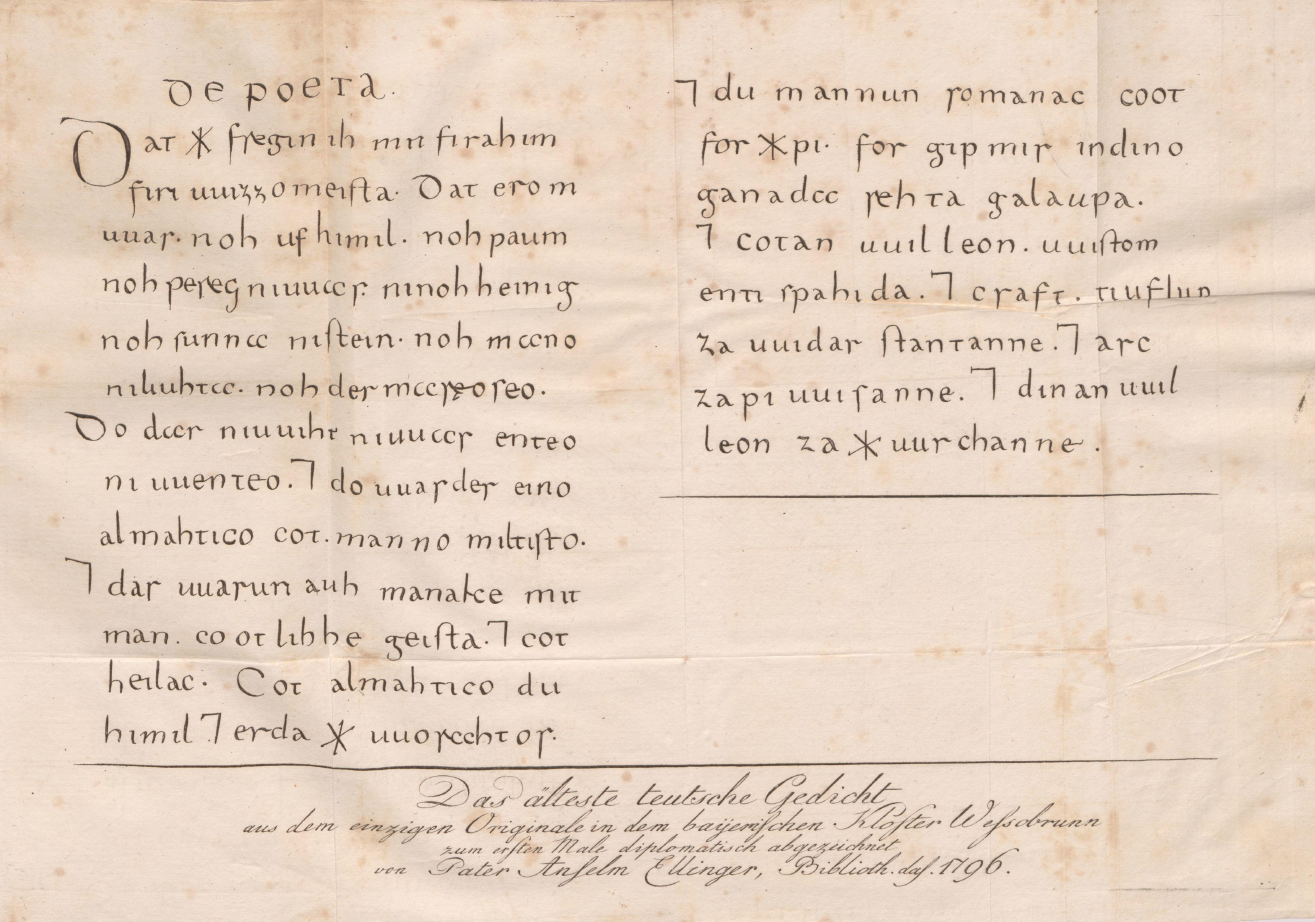 De poeta.
Dat ᚷ fregin ih mit firahim
firi uuizzo meiſta. Dat ero ni
uuas. noh ufhimil. noh paum
noh pereg niuuas. ninohheinig
noh sunna niſtein. noh mano
niliuhta. noh der mareoseo.
Do dar niuuiht niuuas enteo
ni uuenteo. ⁊ do uuas der eino
almahtico cot. manno miltiſto.
⁊ dar uuarun auh manake mit
man. coot lihhe geiſta. ⁊ cot
heilac. Cot almahtico du
himil ⁊ erda ᚷ uuorahtos.
⁊ du mannun somanac coot
for ᚷ pi. for gip mir indino
ganada rehta galaupa.
⁊ cotan uuilleon. uuiſtom
enti spahida. ⁊ craft. tiuflun
za uuidar ſtantanne. ⁊ arc
zapi uuisanne. ⁊ dinan uuil
leon za ᚷ uurchanne.
Das älteste teutsche Gedicht
aus dem einzigen Originale in dem baÿeriſchen Kloſter Weſsobrunn
zum erſten Male diplomatisch abgezeichnet
von Pater Anſelm Ellinger, Biblioth. daſ. 1796.